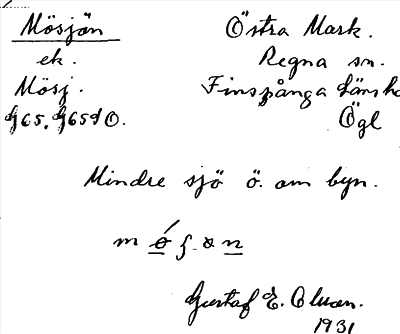 Mösjön Östra Mark.
ek. Regna sn.
Mösj. Finspånga länsh
G65. G65d O. Ögl
Mindre sjö ö. om byn.
Gustaf E.
1931